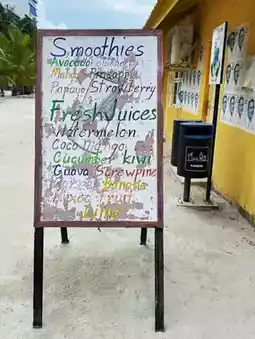 Smoothies
Avocado Blueberry
Mango Pineapple
Papaya Strawberry
Fresh Juices
Watermelon
Coco Mango
Cucumber Kiwi
Guava Screwpine
Banana
Lime